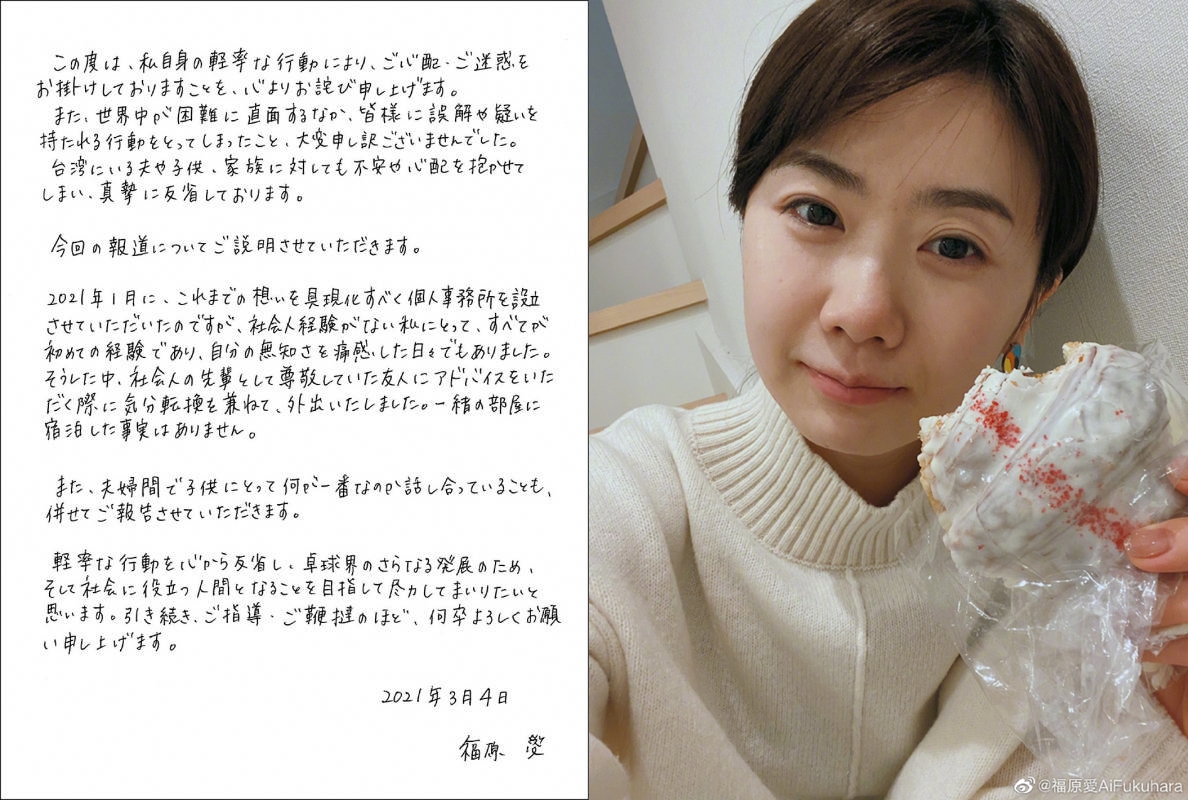 この度は、私自身の軽率な行動により、ご心配・ご迷惑を
お掛けしておりますことを、心よりお詫び申し上げます。
また、世界中が困難に直面するなか、皆様に誤解や疑いを
持たれる行動をとってしまったこと、大変申し訳ございませんでした。
台湾にいる夫や子供、家族に対しても不安や心配を抱かせて
しまい、真摯に反省しております。
今回の報道についてご説明させていただきます。
2021年1月に、これまでの想いを具現化すべく個人事務所を設立
させていただいたのですが、社会人経験がない私にとって、すべてが
初めての経験であり、自分の無知さを痛感した日々でもありました。
そうした中、社会人の先輩として尊敬していた友人にアドバイスをいた
だく際に気分転換を兼ねて、外出いたしました。一緒の部屋に
宿泊した事実はありません。
また、夫婦間で子供にとって何が一番なのか話し合っていることも、
併せてご報告させていただきます。
軽率な行動を心から反省し、卓球界のさらなる発展のため、
そして社会に役立つ人間となることを目指して尽力してまいりたいと
思います。引き続き、ご指導・ご鞭撻のほど、何卒よろしくお願
い申し上げます。
2021年3月4日
福原 愛
@福原愛AiFukuhara